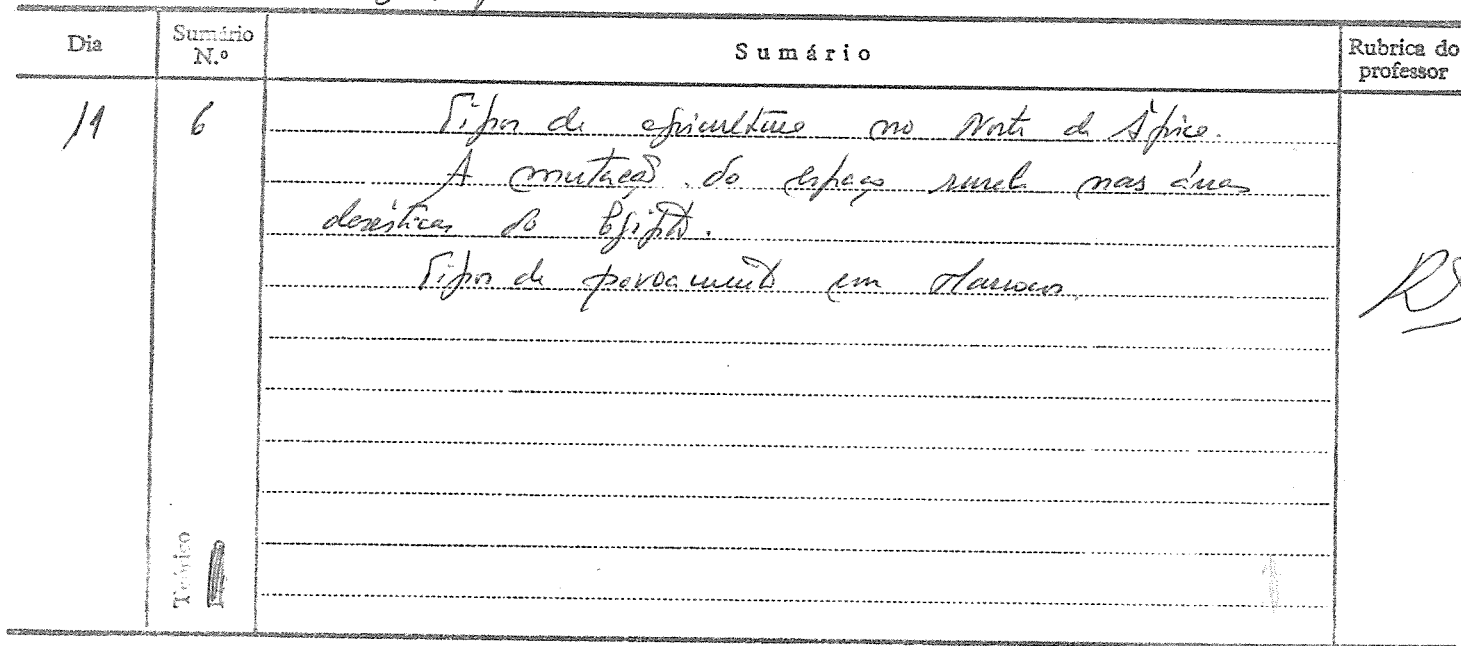 Dia
Sumário N.º
Sumário
Rubrica do professor
11
6
Tipos de agricultura no Norte de África.
A mutação do espaço rural nas áreas
desérticas do Egipto.
Tipos de povoamento em Marrocos.
Teórico